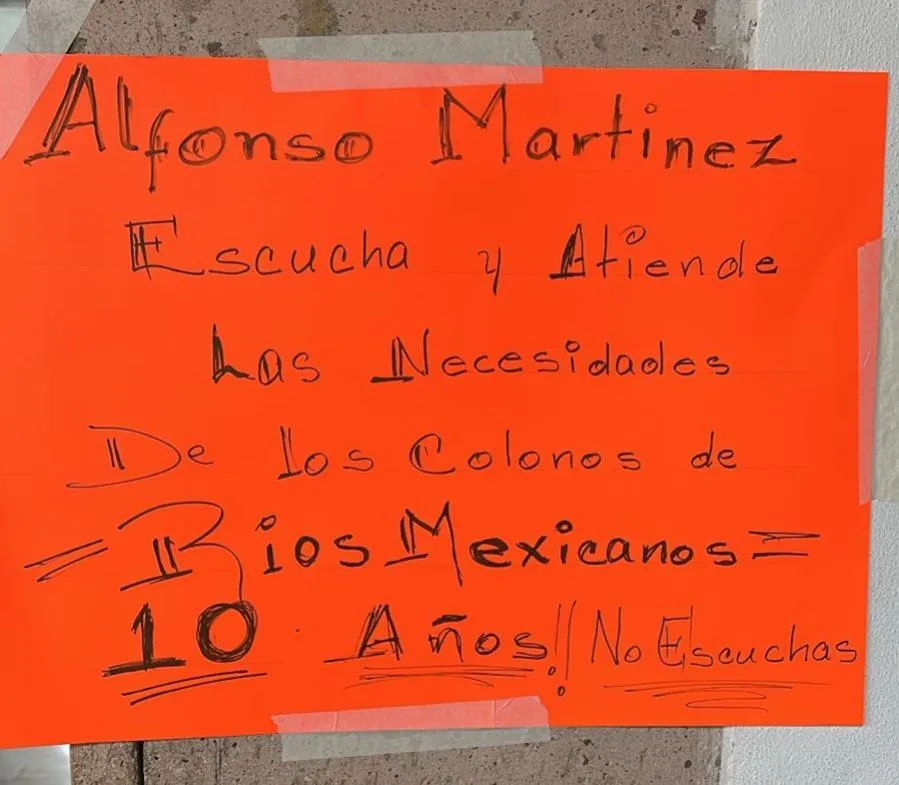 Alfonso Martinez
Escucha y Atiende
Las Necesidades
De los Colonos de
=Rios Mexicanos=
10 Años!! No Escuchas